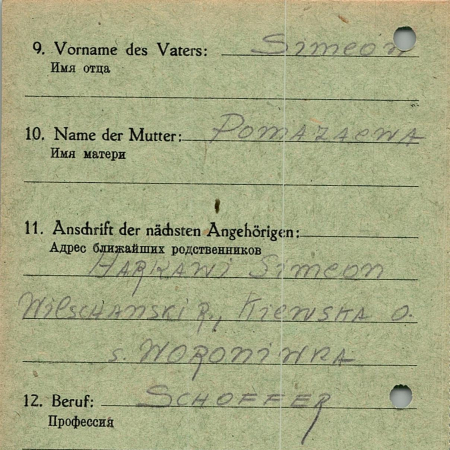 9. Vorname des Vaters: Simeon
Имя отца
10. Name der Mutter: Pomazaewa
Имя матери
11. Anschrift der nächsten Angehörigen:
Адрес ближайших родственников
Harkawi Simeon
Wilschanski R., Kiewska O.
s. Woroniwka
12. Beruf: Schoffer
Профессия